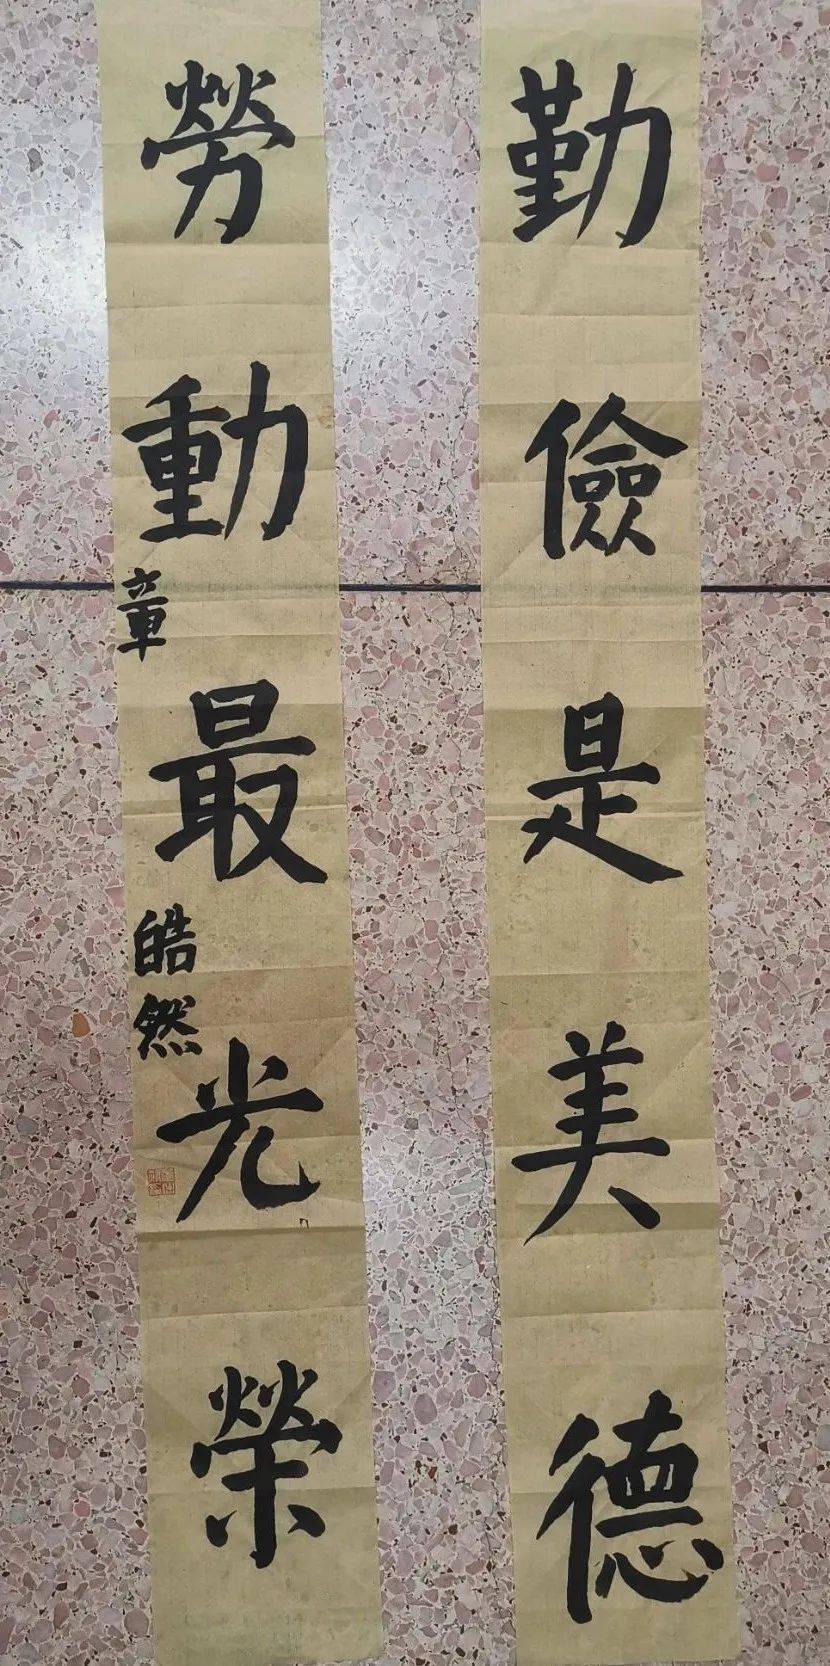 勤儉是美德
勞動最光榮
章皓然